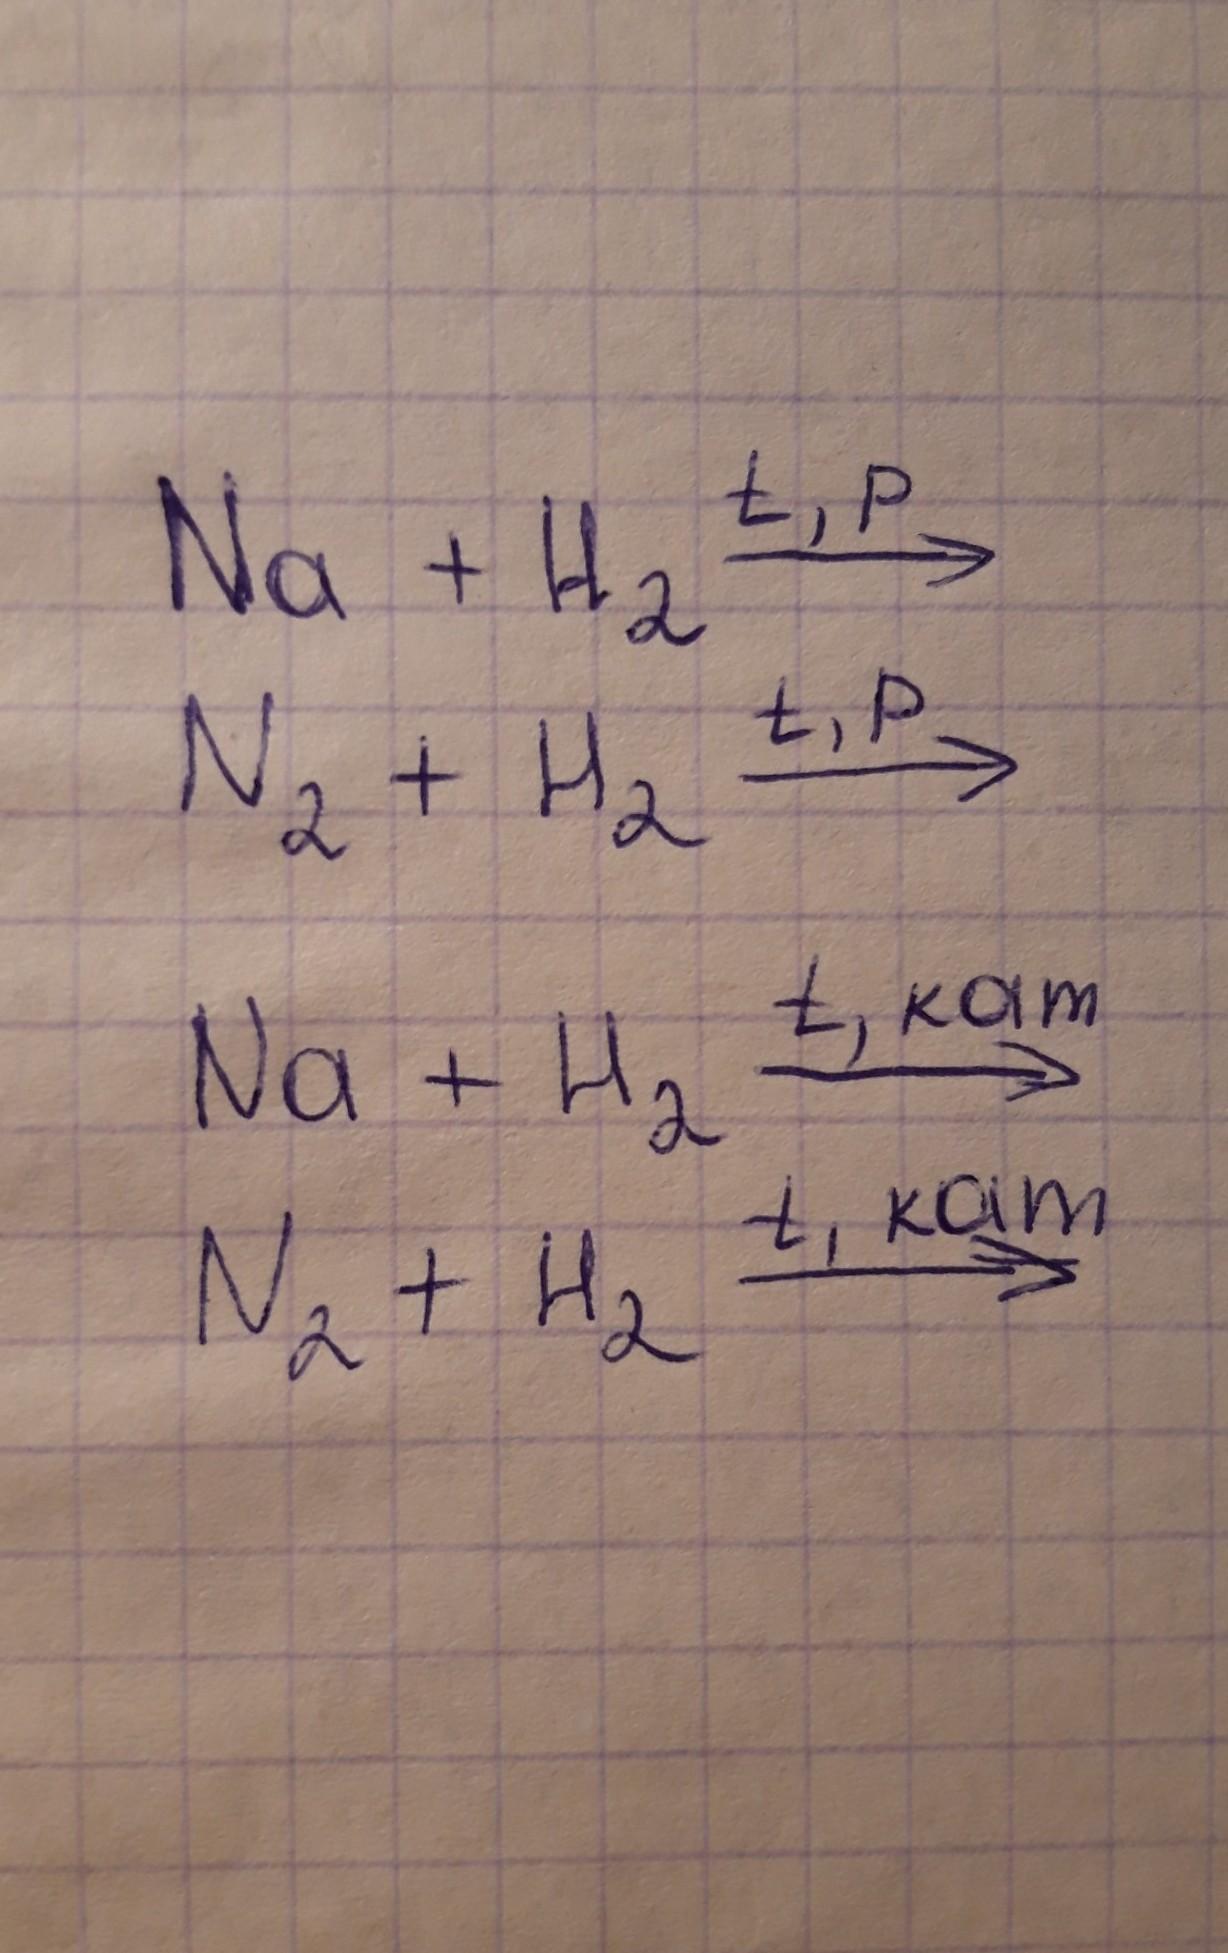 Na + H₂ t, p →
N₂ + H₂ t, p →
Na + H₂ t, кат →
N₂ + H₂ t, кат →